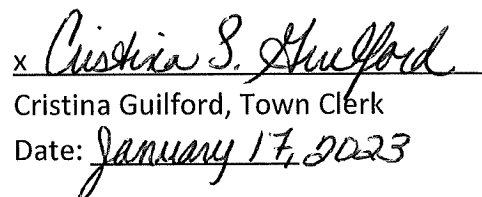 x Cristina S. Guilford
Cristina Guilford, Town Clerk
Date: January 17, 2023